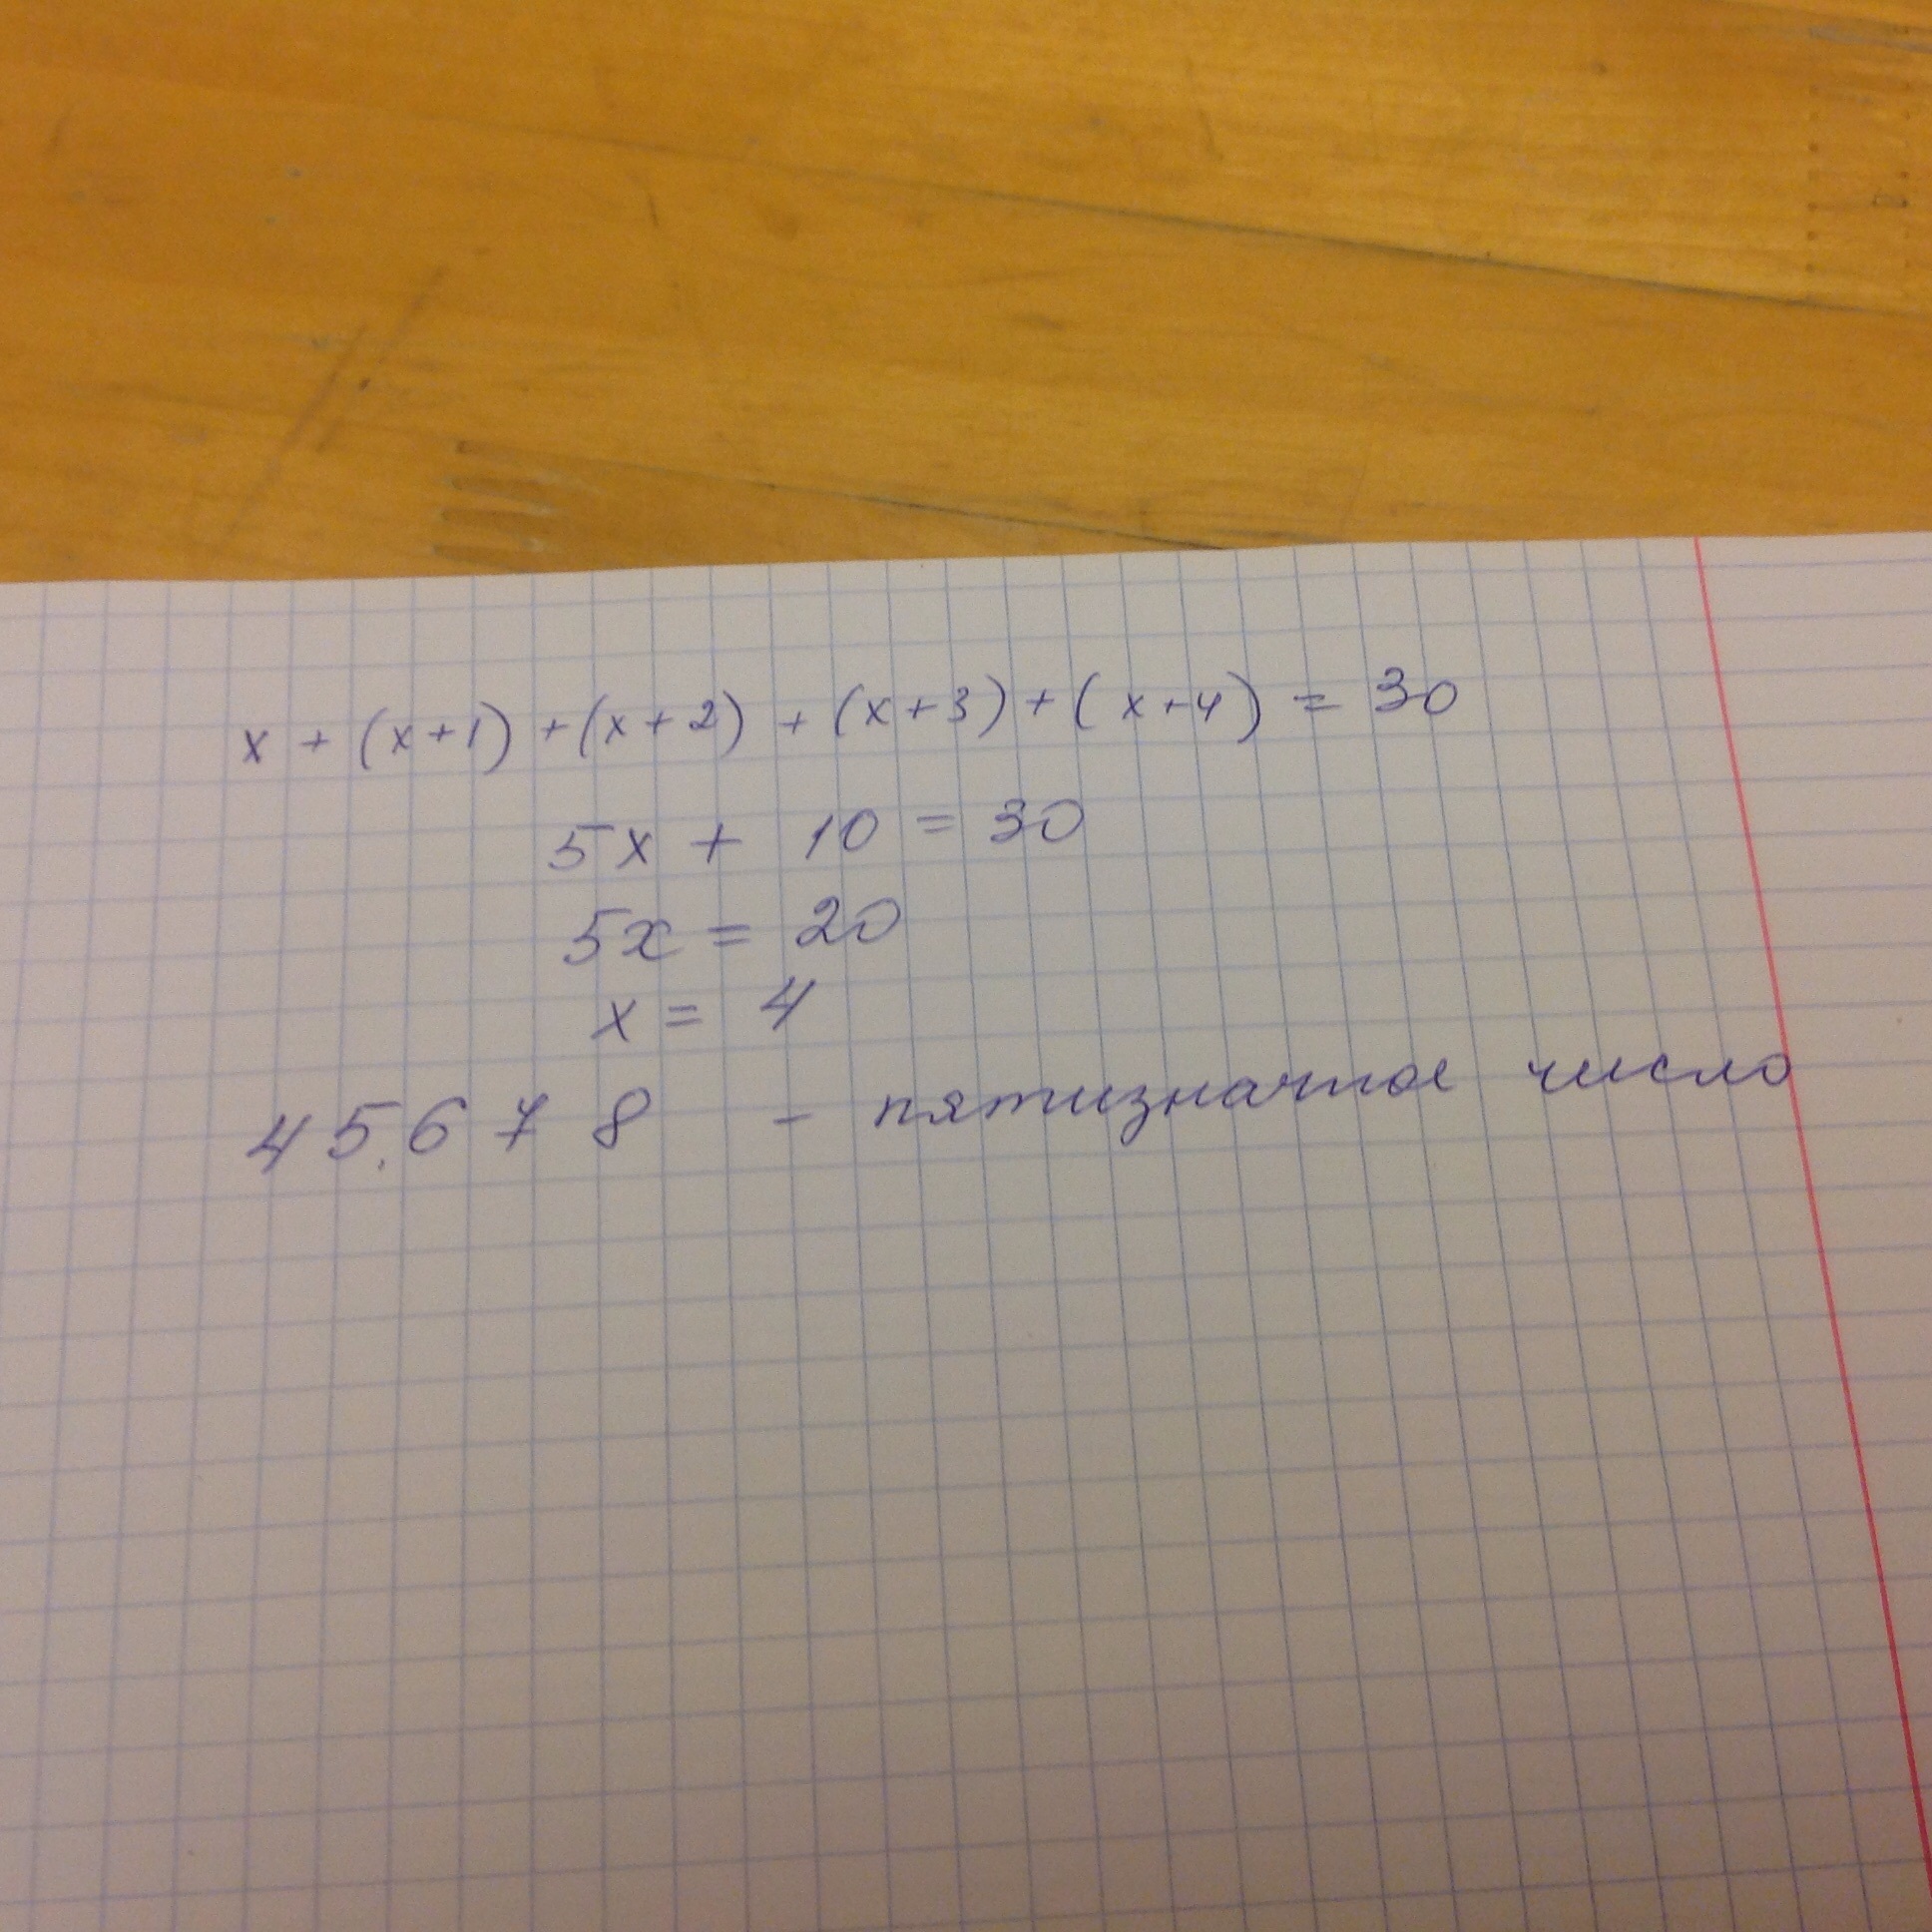 x + (x+1) + (x+2) + (x+3) + (x+4) = 30
5x + 10 = 30
5x = 20
x = 4
45.678 - пятизначное число